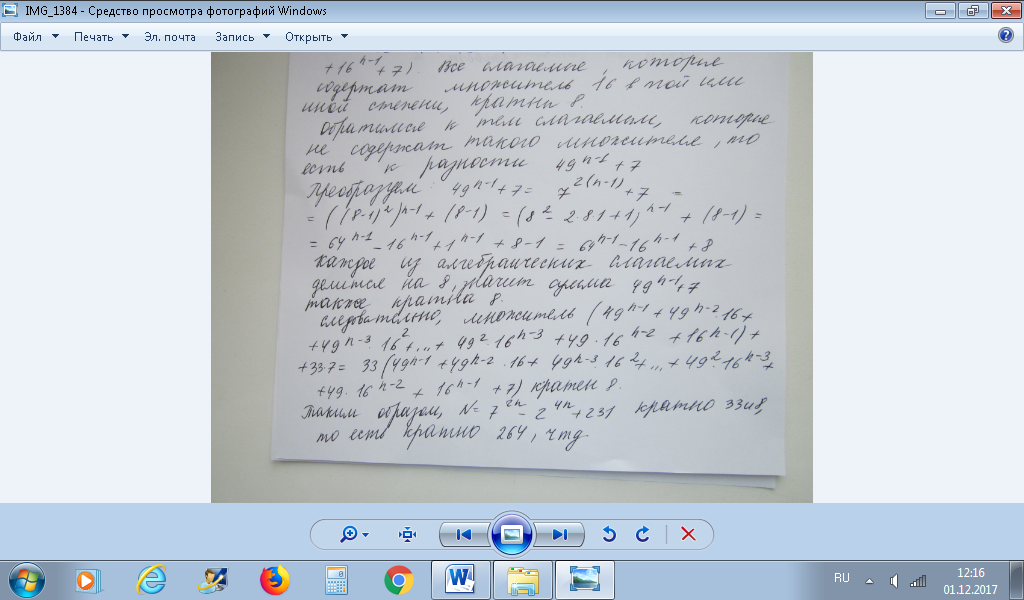 IMG_1384 - Средство просмотра фотографий Windows
Файл Печать Эл. почта Запись Открыть
+16^(n-1)+7). Все слагаемые, которые
содержат множитель 16 в той или
иной степени, кратны 8.
Обратимся к тем слагаемым, которые
не содержат такого множителя, то
есть к разности 49^(n-1)+7
Преобразуем: 49^(n-1)+7 = 7^(2(n-1))+7 =
= ((8-1)^2)^(n-1) + (8-1) = (8^2 - 2·8·1+1)^(n-1) + (8-1) =
= 64^(n-1) - 16^(n-1) + 1^(n-1) + 8-1 = 64^(n-1) - 16^(n-1) + 8
Каждое из алгебраических слагаемых
делится на 8, значит сумма 49^(n-1)+7
также кратна 8.
следовательно, множитель (49^(n-1) + 49^(n-2)·16+
+49^(n-3)·16^2+...+ 49^2·16^(n-3) +49·16^(n-2) +16^(n-1)) +
+33·7= 33(49^(n-1) +49^(n-2)·16+ 49^(n-3)·16^2+...+49^2·16^(n-3)+
+49·16^(n-2) + 16^(n-1) +7) кратен 8.
Таким образом, N= 7^(2n) - 2^(4n) +231 кратно 33и8,
то есть кратно 264, чтд
RU
12:16
01.12.2017